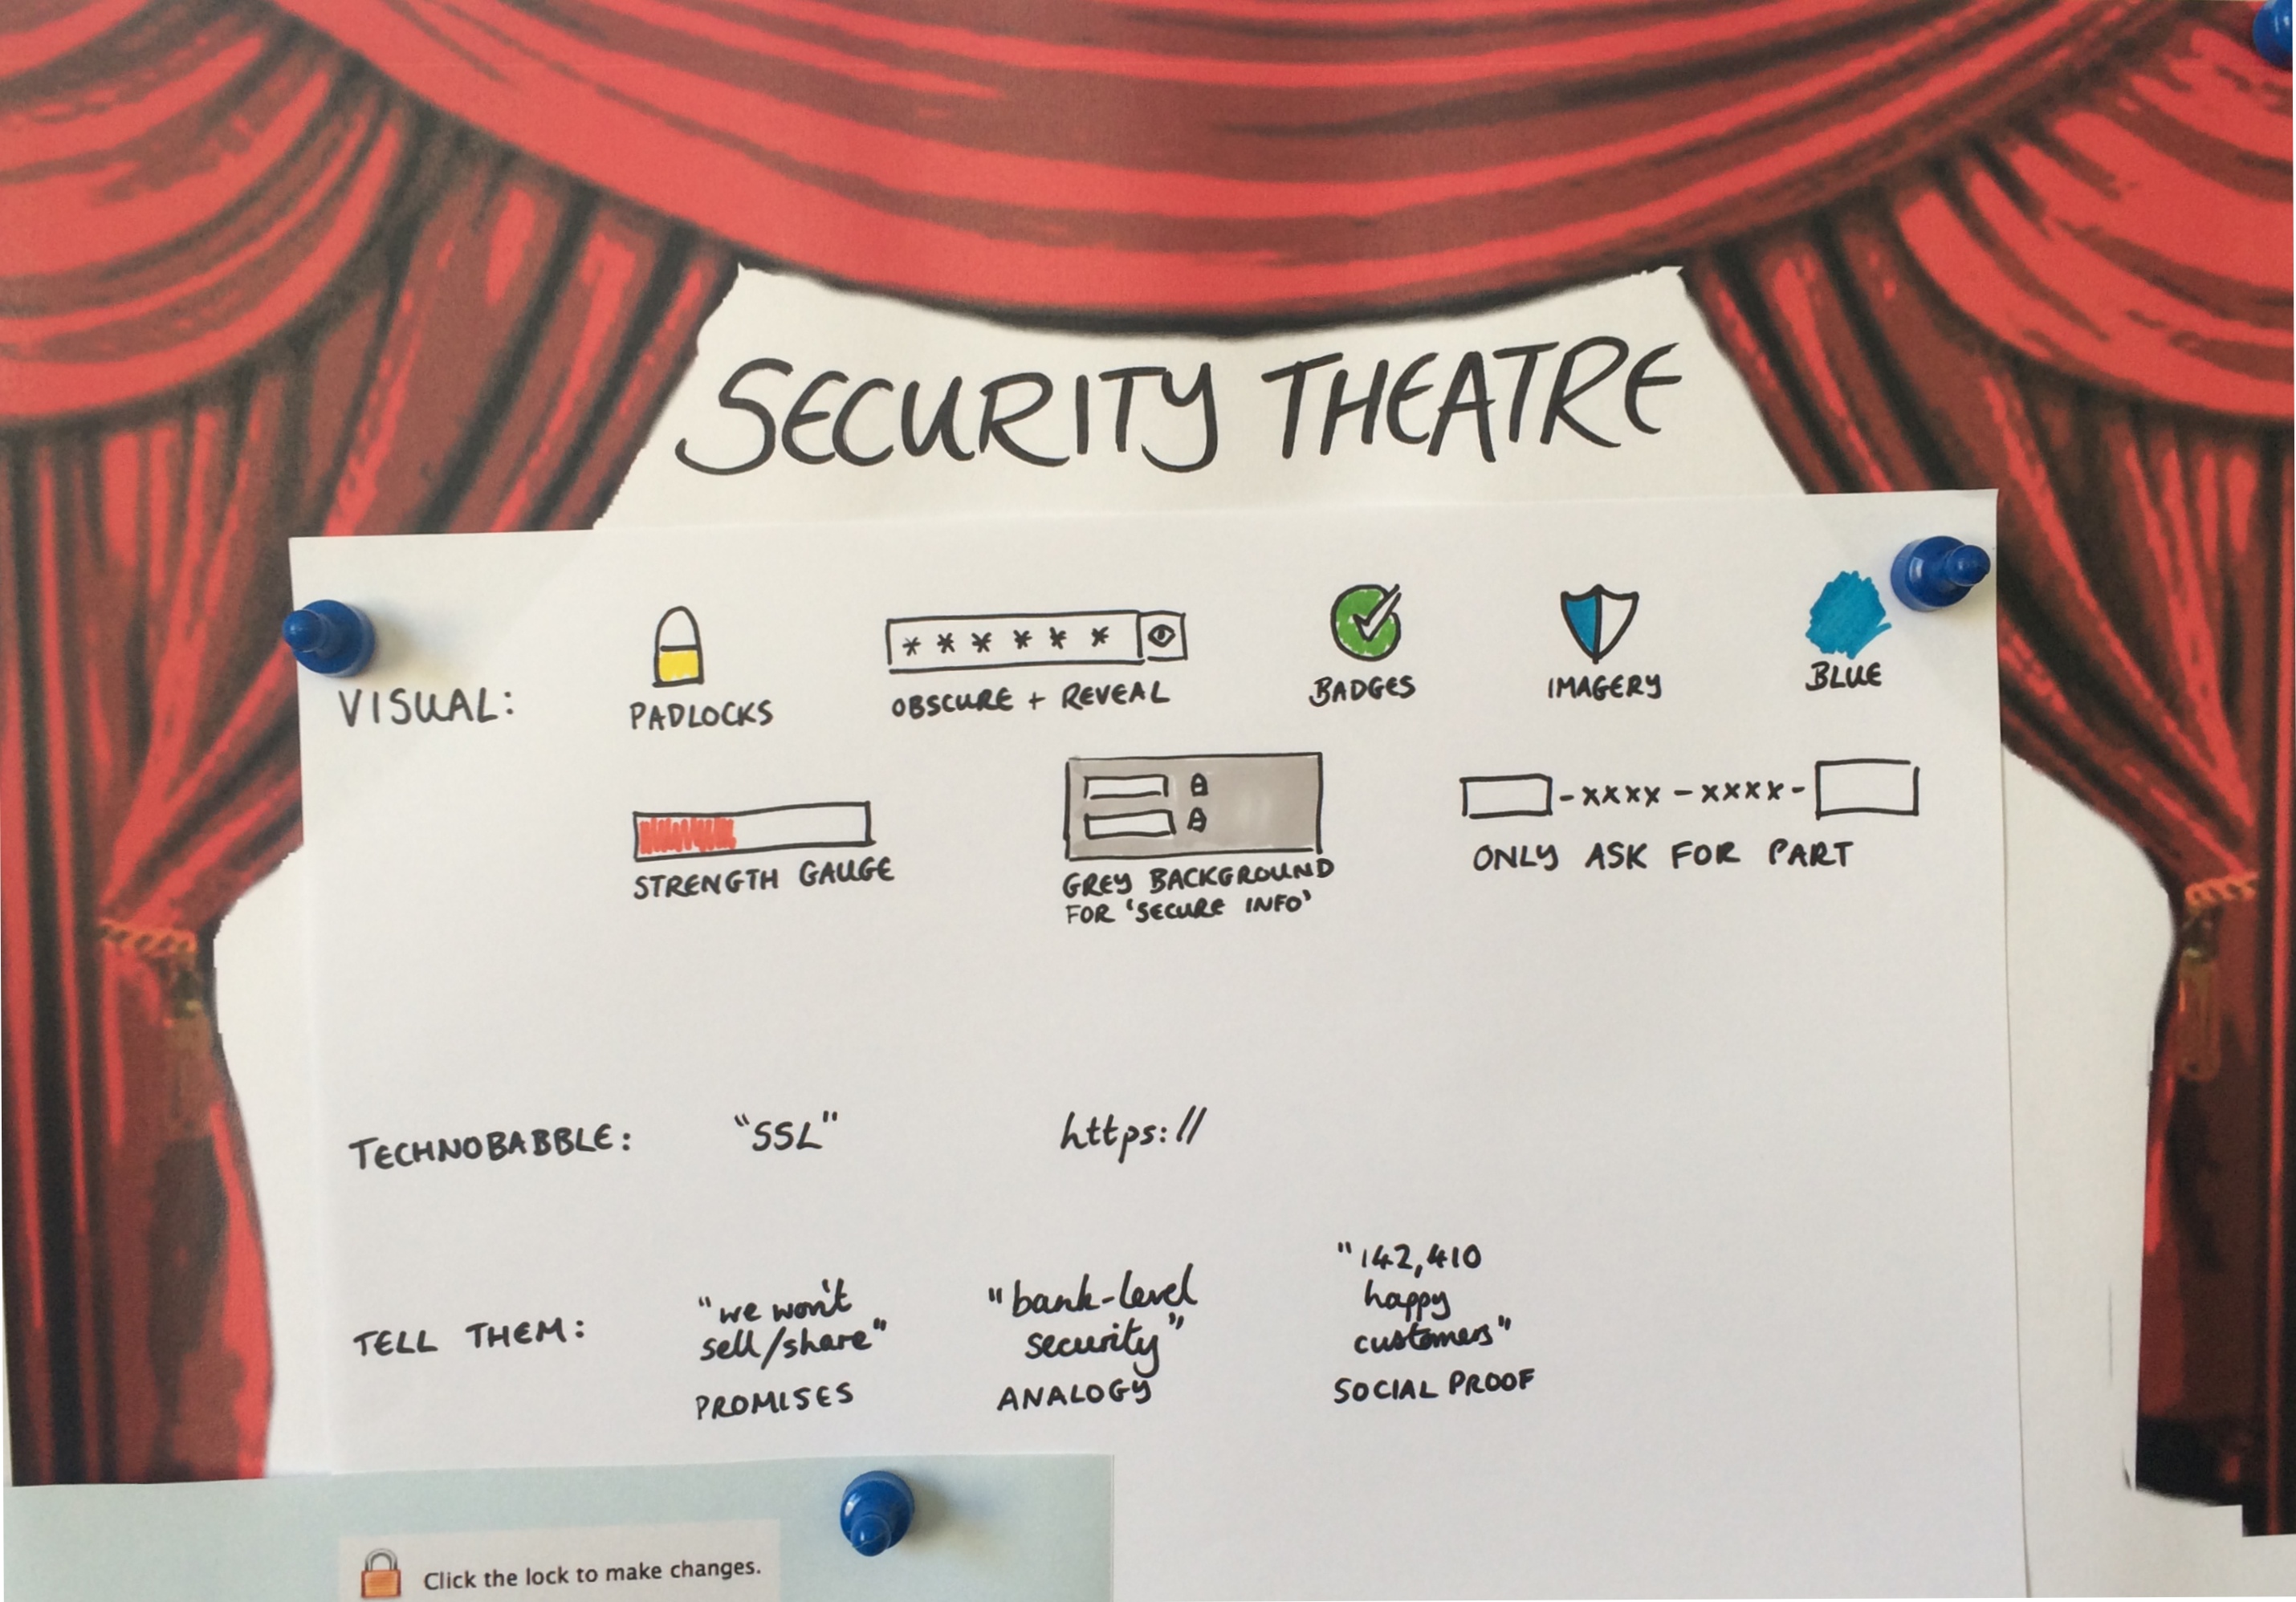 SECURITY THEATRE
VISUAL:
PADLOCKS
* * * * * *
OBSCURE + REVEAL
BADGES
IMAGERY
BLUE
STRENGTH GAUGE
GREY BACKGROUND
FOR 'SECURE INFO'
-xxxx-xxxx-
ONLY ASK FOR PART
TECHNOBABBLE:
"SSL"
https://
TELL THEM:
"we won't
sell/share"
PROMISES
"bank-level
security"
ANALOGY
"142,410
happy
customers"
SOCIAL PROOF
Click the lock to make changes.